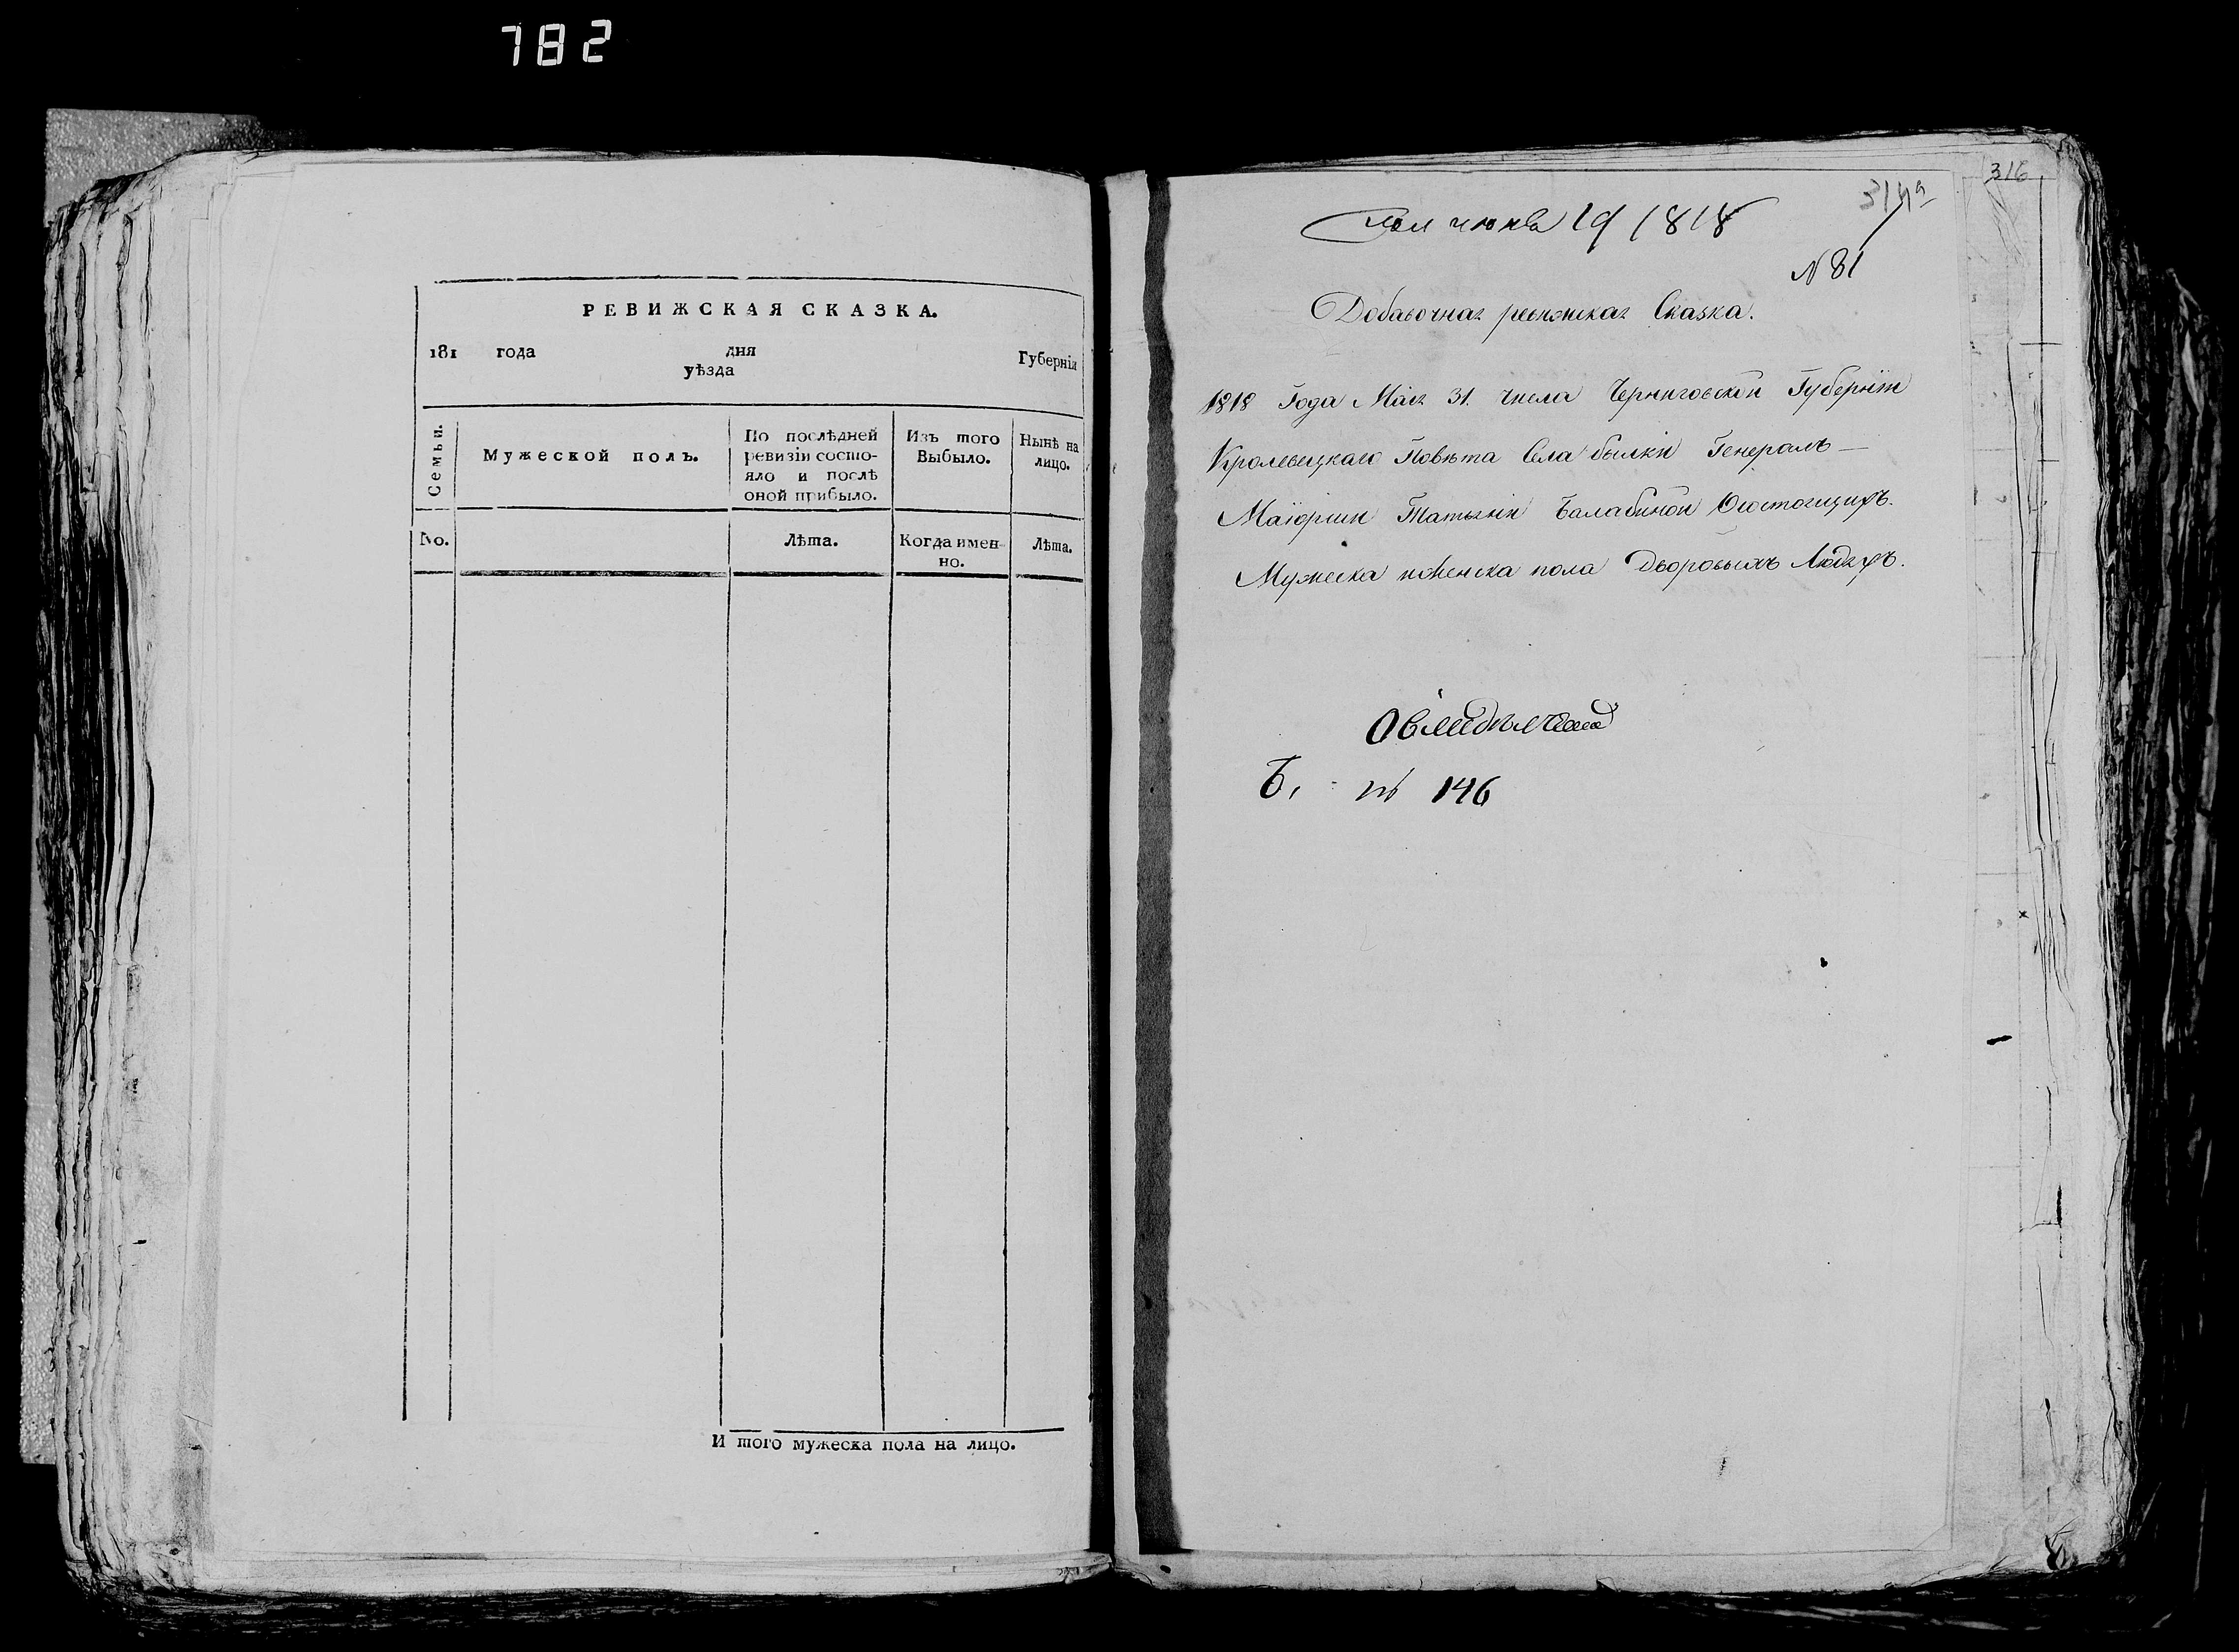 782
РЕВИЖСКАЯ СКАЗКА.
181 года дня Губерніи
уѣзда
Семьи.
Мужеской полъ.
По послѣдней ревизіи состо-
яло и послѣ оной прибыло.
Изъ того Выбыло.
Нынѣ на лицо.
No.
Лѣта.
Когда имен-
но.
Лѣта.
И того мужеска пола на лицо.
316
314а
июня 19 1818
N 81
Добавочная ревижская Сказка.
1818 Года Маія 31. числа Черниговской Губерніи
Кролевецкаго Повѣта Села былки Генералъ—
Маіорши Татьяни Балабиной О состоящихъ.
Мужеска иженска пола Дворовыхъ Людяхъ.
Б. № 146